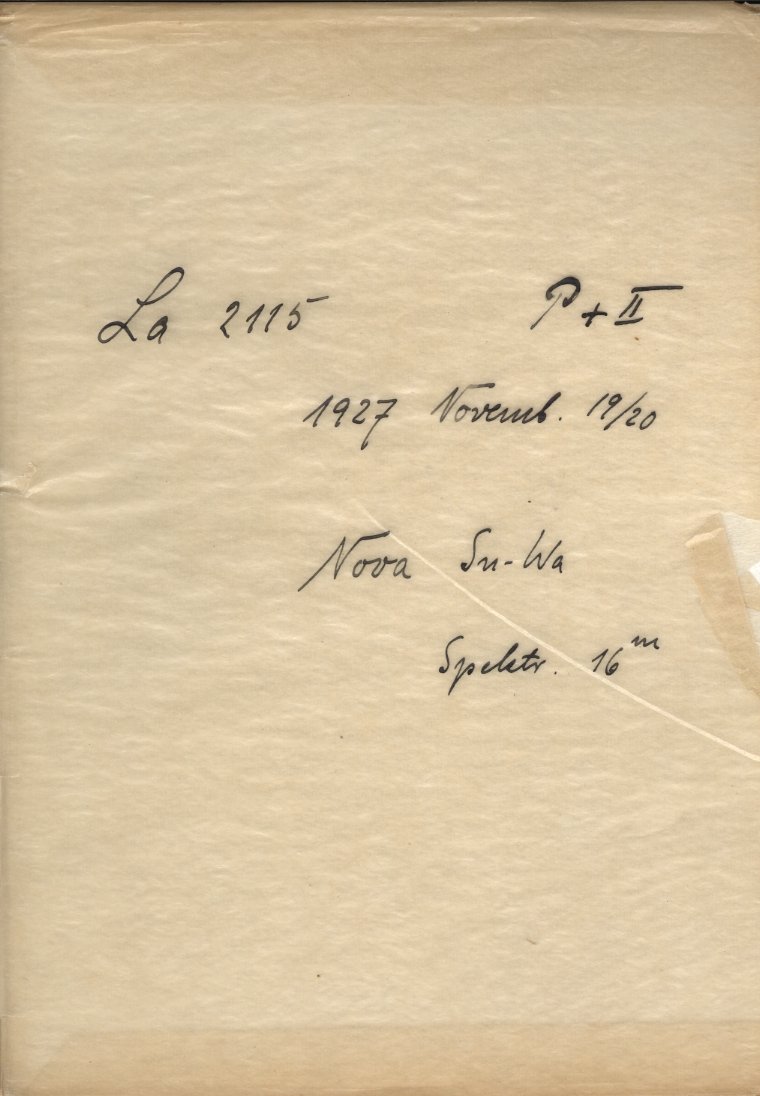 La 2115 P + II
1927 Novemb. 19/20
Nova Sn-Wa
Spektr. 16ᵐ